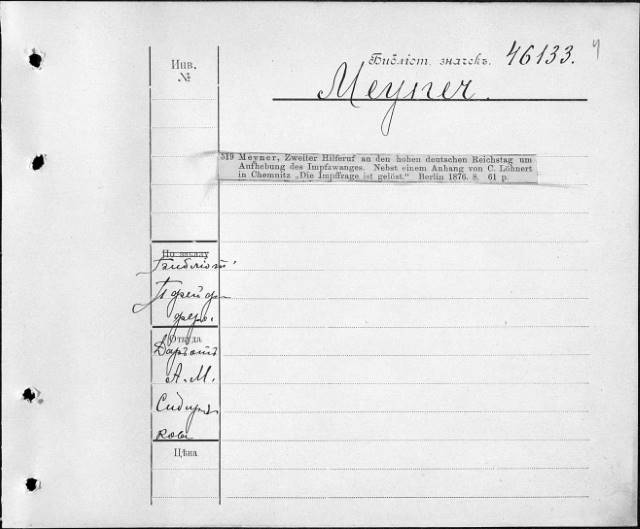 Инв.
№
Библіот. значекъ. 46133.
Meyner.
519 Meyner, Zweiter Hilferuf an den hohen deutschen Reichstag um
Aufhebung des Impfzwanges. Nebst einem Anhang von C. Löhnert
in Chemnitz „Die Impffrage ist gelöst.“ Berlin 1876. 8. 61 p.
По заказу
Библіот.
Пфейф-
фера.
Откуда
Даръ отъ
А. М.
Сибиря-
кова
Цѣна